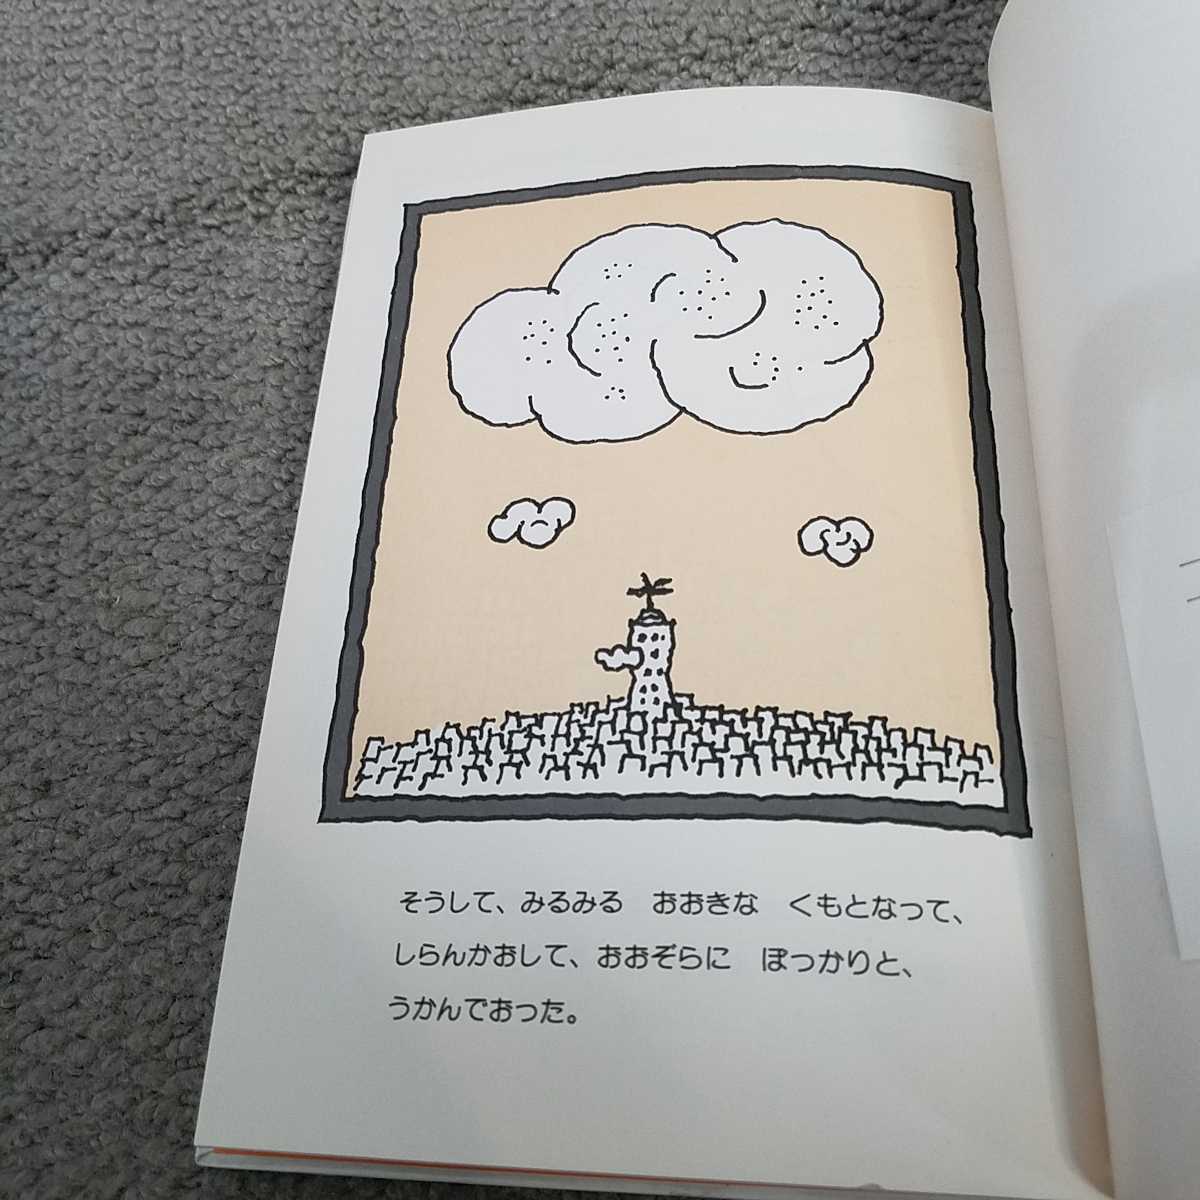 そうして、みるみる　おおきな　くもとなって、
しらんかおして、おおぞらに　ぽっかりと、
うかんでおった。